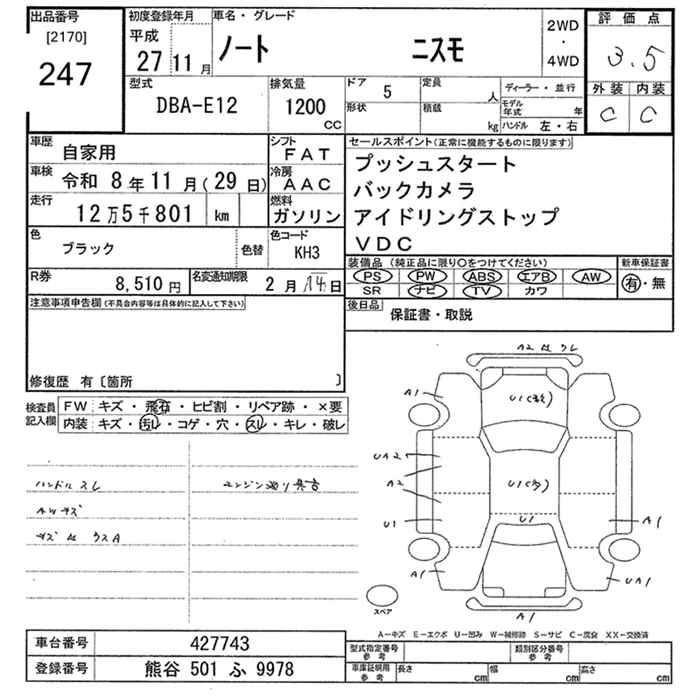 出品番号
[2170]
247
初度登録年月
平成
27 11 月
車名・グレード
ノート ニスモ
2WD
・
4WD
評価点
3.5
外装 内装
C C
型式
DBA-E12
排気量
1200
CC
ドア 5
形状
定員 人
積載 kg
ディーラー・並行
モデル年式 年
ハンドル 左・右
車歴 自家用
シフト FAT
車検 令和 8年 11月(29日)
冷房 AAC
走行 12万5千801 km
燃料 ガソリン
色 ブラック 色替
色コード KH3
R券 8,510円
名変通知期限 2月14日
セールスポイント(正常に機能するものに限ります)
プッシュスタート
バックカメラ
アイドリングストップ
VDC
装備品 (純正品に限り○をつけてください)
PS PW ABS エアB AW
SR ナビ TV カワ
新車保証書
有・無
後日品
保証書・取説
注意事項申告欄(不具合内容等は具体的に記入して下さい)
修復歴 有〔箇所 〕
検査員記入欄
FW キズ・飛石・ヒビ割・リペア跡・×要
内装 キズ・汚レ・コゲ・穴・スレ・キレ・破レ
ハンドルスレ
A2 スレ
A1
U1(多)
UA2
A2
U1(多)
U1
U1
A1
A1
UA1
A1
スペア
A-キズ E-エクボ U-凹み W-補修跡 S-サビ C-腐食 XX-交換済
車台番号 427743
登録番号 熊谷 501 ふ 9978
型式指定番号 参考
類別区分番号 参考
車庫証明用 参考
長さ cm
幅 cm
高さ cm